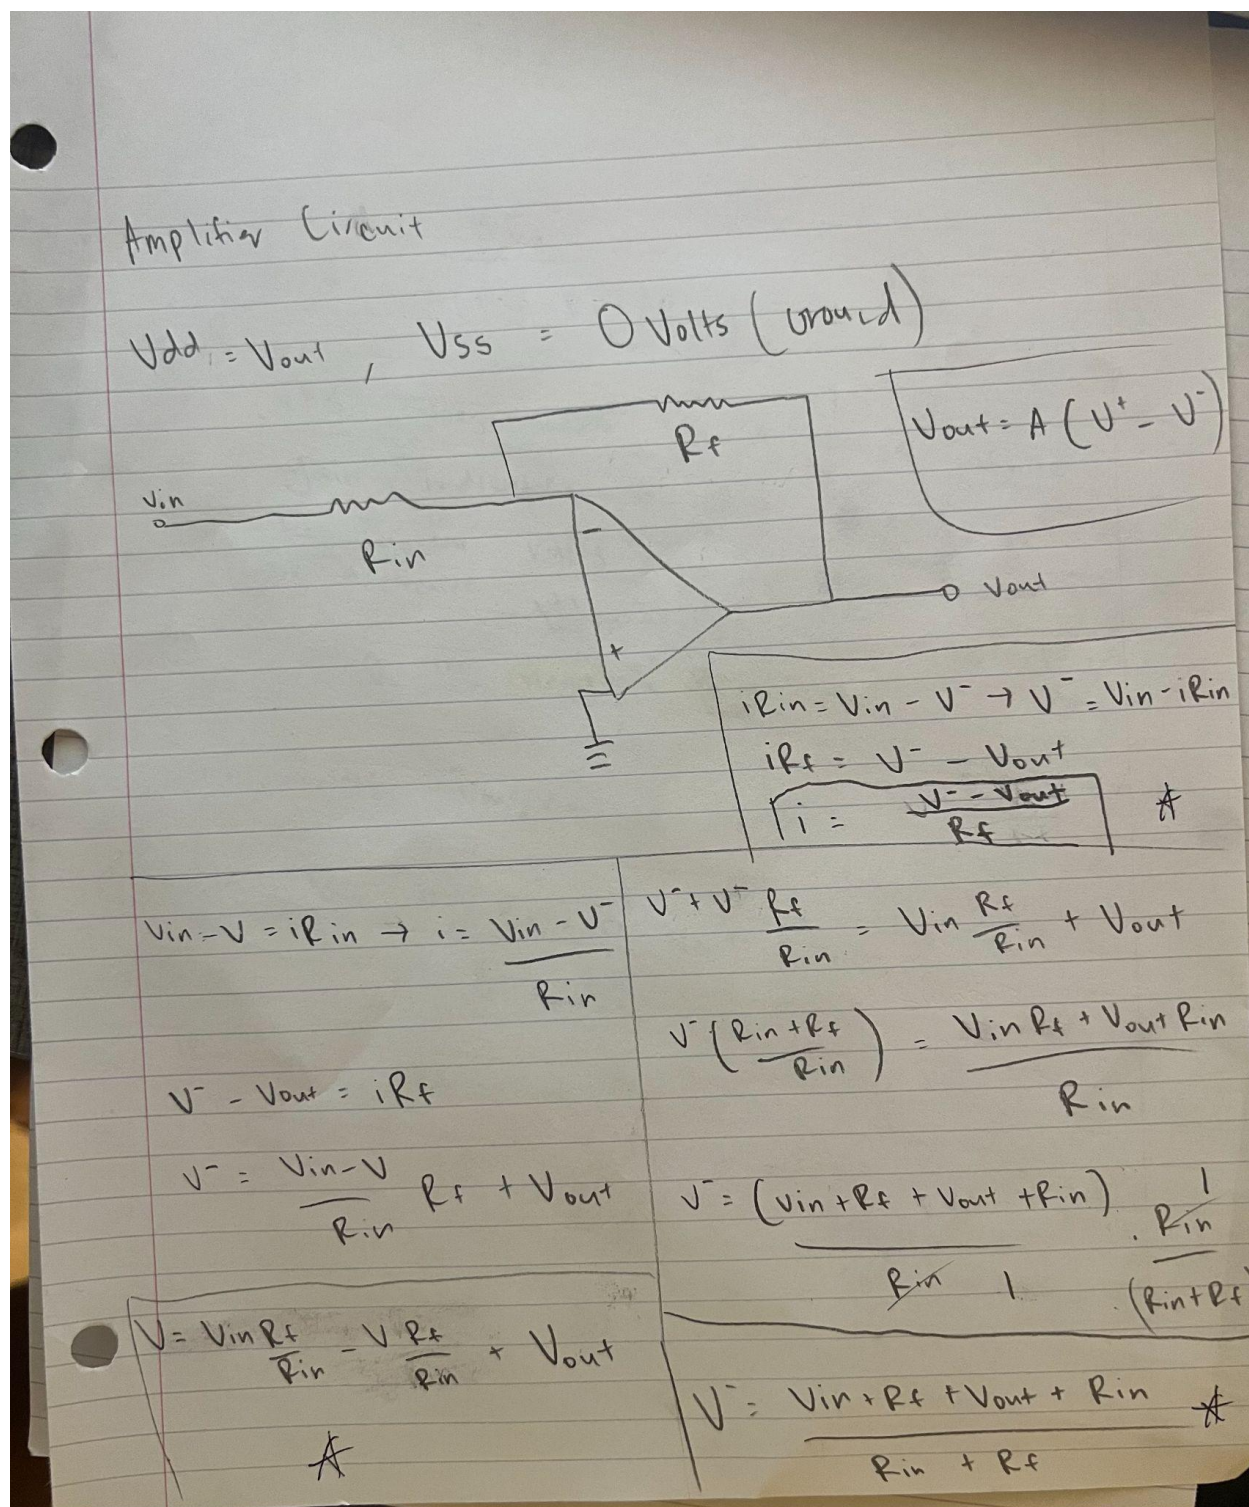 Amplifier Circuit
Vdd = Vout , Vss = 0 Volts (Ground)
Vout = A (V⁺ - V⁻)
Rf
Vin
Rin
-
+
Vout
iRin = Vin - V⁻ → V⁻ = Vin - iRin
iRf = V⁻ - Vout
i = (V⁻ - Vout) / Rf
Vin - V = iRin → i = (Vin - V⁻) / Rin
V⁻ - Vout = iRf
V⁻ = (Vin - V) / Rin Rf + Vout
V = Vin Rf / Rin - V Rf / Rin + Vout
V⁻ + V⁻ Rf / Rin = Vin Rf / Rin + Vout
V⁻ ((Rin + Rf) / Rin) = (Vin Rf + Vout Rin) / Rin
V⁻ = (Vin + Rf + Vout + Rin) / Rin 1 · Rin 1 / (Rin + Rf)
V⁻ = (Vin + Rf + Vout + Rin) / (Rin + Rf)